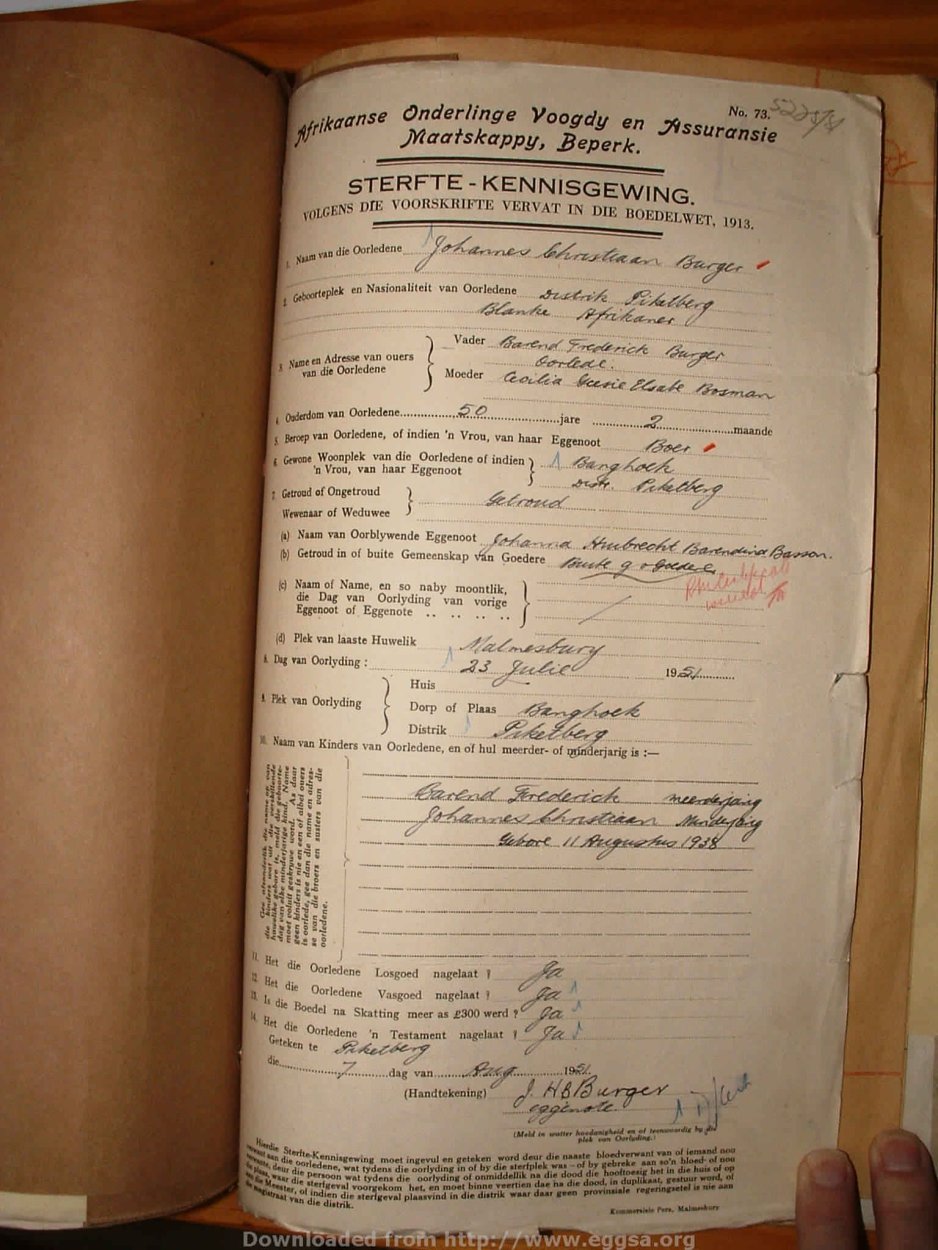 No. 73. 5225/51
Afrikaanse Onderlinge Voogdy en Assuransie
Maatskappy, Beperk.
STERFTE-KENNISGEWING.
VOLGENS DIE VOORSKRIFTE VERVAT IN DIE BOEDELWET, 1913.
1. Naam van die Oorledene Johannes Christiaan Burger
2. Geboorteplek en Nasionaliteit van Oorledene Distrik Piketberg
Blanke Afrikaner
3. Name en Adresse van ouers van die Oorledene } Vader Barend Frederick Burger
Oorlede.
Moeder Cecilia Elsabe Bosman
4. Ouderdom van Oorledene 50 jare 2 maande
5. Beroep van Oorledene, of indien 'n Vrou, van haar Eggenoot Boer
6. Gewone Woonplek van die Oorledene of indien 'n Vrou, van haar Eggenoot } Banghoek
Distr. Piketberg
7. Getroud of Ongetroud
Wewenaar of Weduwee } Getroud
(a) Naam van Oorblywende Eggenoot Johanna Huibrecht Barendina Basson.
(b) Getroud in of buite Gemeenskap van Goedere Buite g v Goedere
(c) Naam of Name, en so naby moontlik,
die Dag van Oorlyding van vorige
Eggenoot of Eggenote .. .. .. .. } /
(d) Plek van laaste Huwelik Malmesbury
8. Dag van Oorlyding : 23 Julie 1951
9. Plek van Oorlyding } Huis
Dorp of Plaas Banghoek
Distrik Piketberg
10. Naam van Kinders van Oorledene, en of hul meerder- of minderjarig is :—
Gee afsonderlik die name op van
die kinders wat uit die verskillende
huwelike gebore is, meld die geboorte-
dag van elke minderjarige kind. Name
moet voluit geskrywe word. As daar
geen kinders is nie en een of albei ouers
is oorlede, gee dan die name en adres-
se van die broers en susters van die
oorledene.
Barend Frederick meerderjarig
Johannes Christiaan Minderjarig
Gebore 11 Augustus 1938
11. Het die Oorledene Losgoed nagelaat ? Ja
12. Het die Oorledene Vasgoed nagelaat ? Ja
13. Is die Boedel na Skatting meer as £300 werd ? Ja
14. Het die Oorledene 'n Testament nagelaat ? Ja
Geteken te Piketberg
die 7 dag van Aug 1951.
(Handtekening) J. H B Burger
eggenote
(Meld in watter hoedanigheid en of teenwoordig by die
plek van Oorlyding.)
Hierdie Sterfte-Kennisgewing moet ingevul en geteken word deur die naaste bloedverwant van of iemand nou
verwant aan die oorledene, wat tydens die oorlyding in of by die sterfplek was—of by gebreke aan so'n bloed- of nou
verwante, deur die persoon wat tydens die oorlyding of onmiddellik na die dood die hooftoesig het in die huis of op
die plaas, waar die sterfgeval voorgekom het, en moet binne veertien dae na die dood, in duplikaat, gestuur word, of
aan die Meester, of indien die sterfgeval plaasvind in die distrik waar daar geen provinsiale regeringsetel is nie aan
die magistraat van die distrik.
Kommersiele Pers, Malmesbury
Downloaded from http://www.eggsa.org